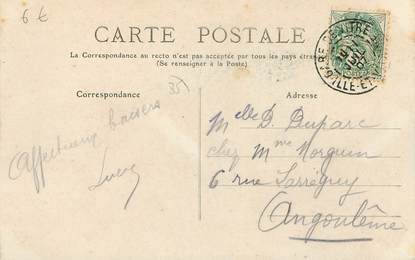 6 €
CARTE POSTALE
La Correspondance au recto n'est pas acceptée par tous les pays étran
(Se renseigner à la Poste)
Correspondance
35
Adresse
Affectueux baisers
Lucy
Melle D. Duparc
chez Mme Morguen
6 rue
Angoulême
ILLE-ET-